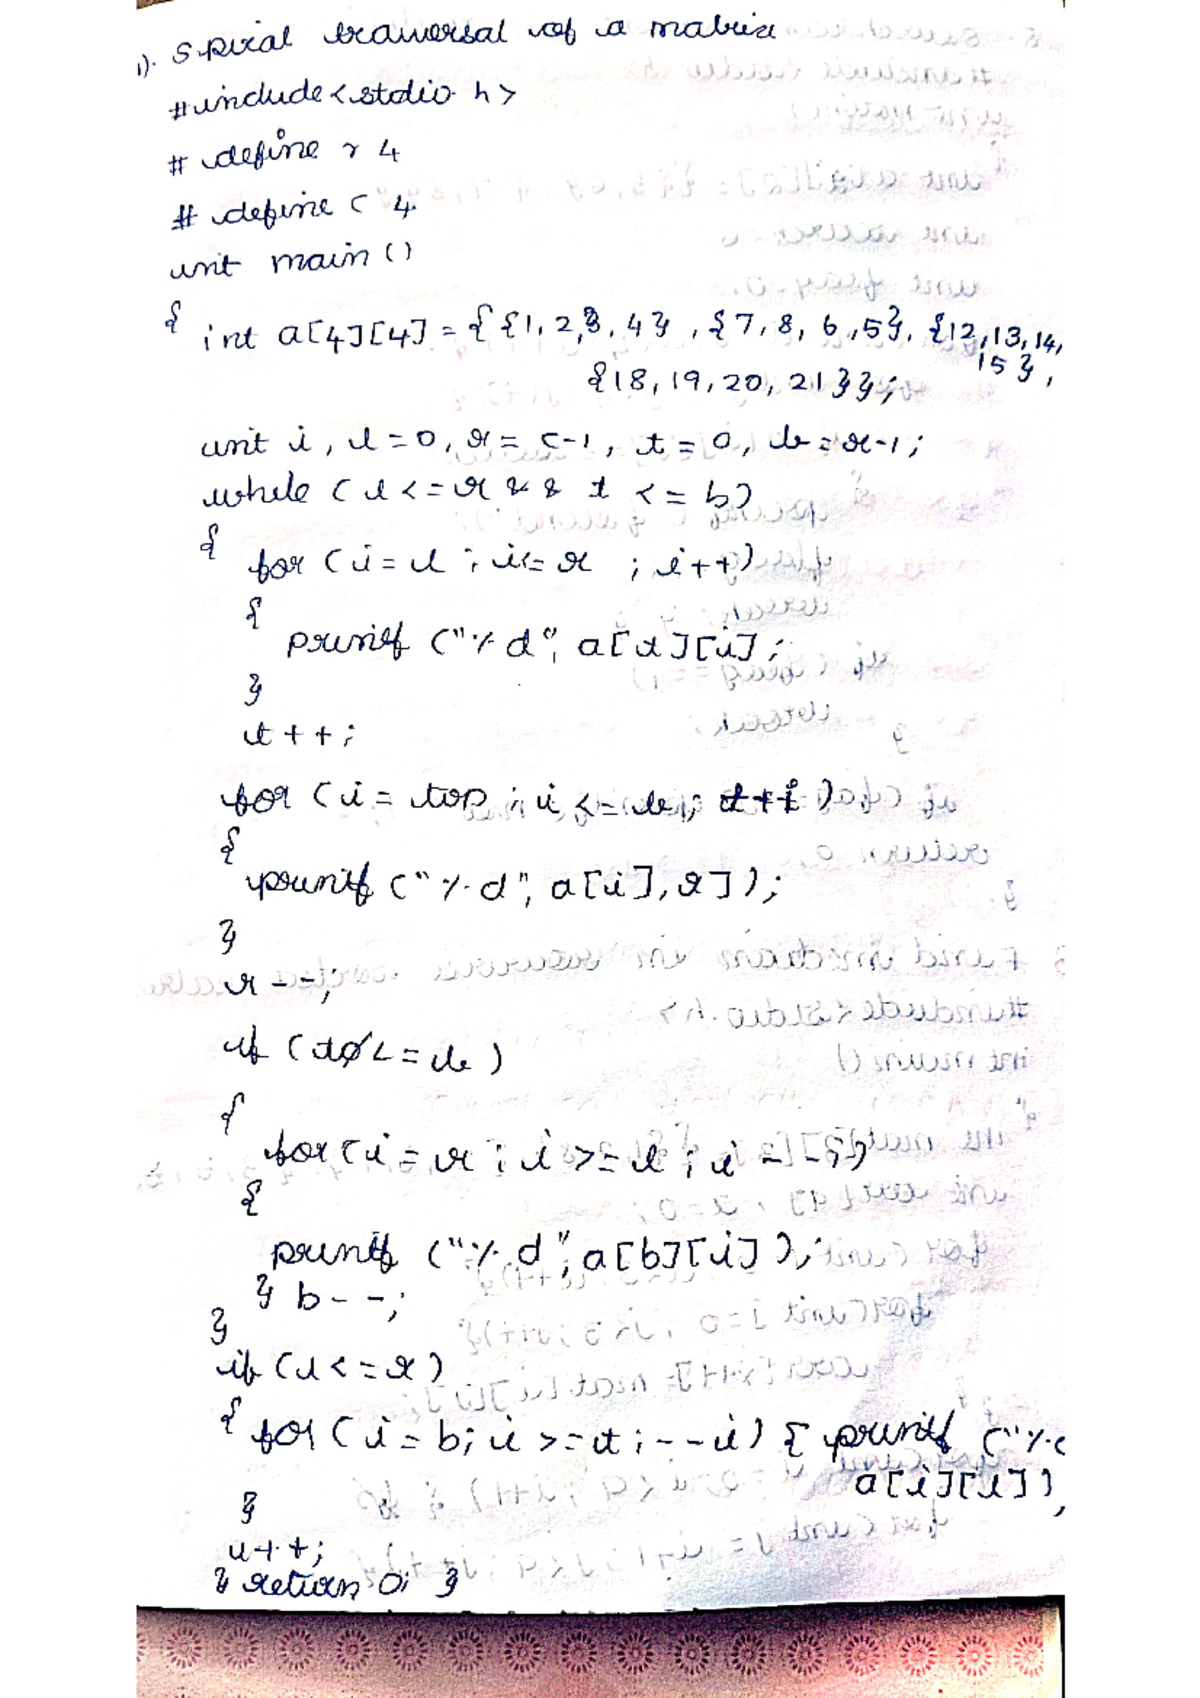 1). Spiral traversal of a matrix
#include<stdio.h>
# define r 4
# define c 4.
int main ()
{ int a[4][4] = { {1, 2, 3, 4} , {7, 8, 6, 5}, {12, 13, 14,
15 } ,
{18, 19, 20, 21}};
int i, l = 0, r = c-1, t = 0, b = r-1;
while ( l <= r && t <= b)
{
for ( i = l ; i<= r ; i++)
{
printf ("%d", a[t][i];
}
t++;
for ( i = top ; i <= b; ++i )
{
printf ("%d", a[i],r]);
}
r--;
if ( t <= b )
{
for ( i = r ; i >= l ; i --)
{
printf ("%d", a[b][i] );
} b--;
}
if ( l <= r )
{ for ( i = b; i >= t ; --i) { printf ("%d
a[i][l] ),
}
l++;
} return 0; }